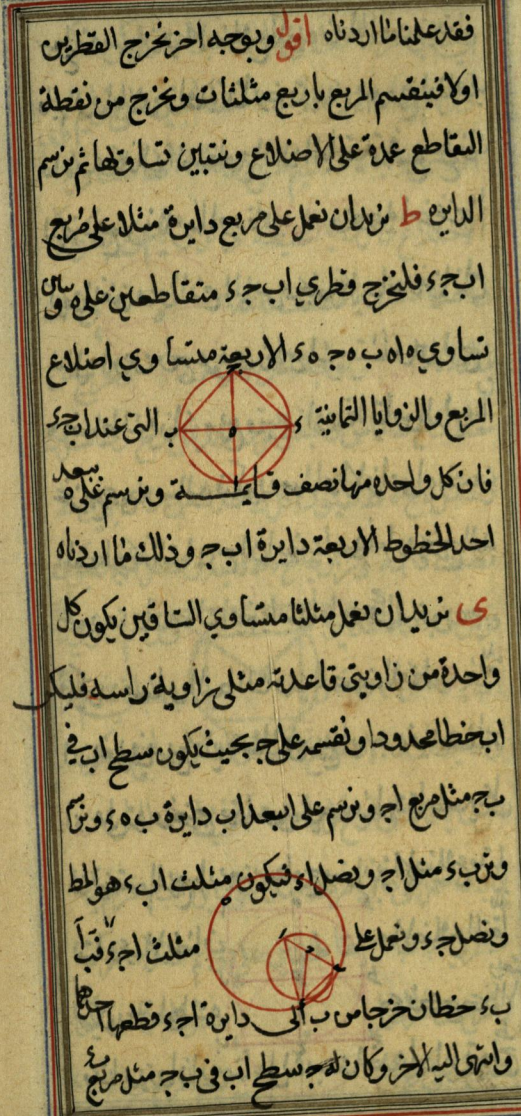 فقد علمنا ما اردناه اقول وبوجه اخر نخرج القطرين
اولا فينقسم المربع باربع مثلثات ونخرج من نقطة
التقاطع عمدة على الاضلاع ونتبين تساوتها ثم نرسم
الدايرة ط نريد ان نعمل على مربع دايرة مثلا على مربع
اب جء فلنخرج قطري اب جء متقاطعين على ه وبين
تساوي ه اه ب ه ج ه ء الاربعة متساوي اضلاع
المربع والزوايا الثمانية التى عند اب جء
ء ب ه
فان كل واحدة منها نصف قايمـة ونرسم على ه ببعد
احد الخطوط الاربعة دايرة اب ج وذلك ما اردناه
ى نريد ان نعمل مثلثا متساوي الساقين يكون كل
واحدة من زاويتى قاعدته مثلى زاوية راسه فليكن
اب خطا محدودا ونقسمه على ج بحيث يكون سطح اب في
ب ج مثل مربع اج ونرسم على ا ببعد اب دايرة ب ه ء ونرسم
وتر بء مثل اج ونصل اء فيكون مثلث اب ء هو المط
ونصل جء ونعمل على مثلث اجء
بء خطان خرجا من ب الى دايرة اجء قطعها احدهما
وانتهى اليه الاخر وكان سطح اب فى ب ج مثل مربع بء